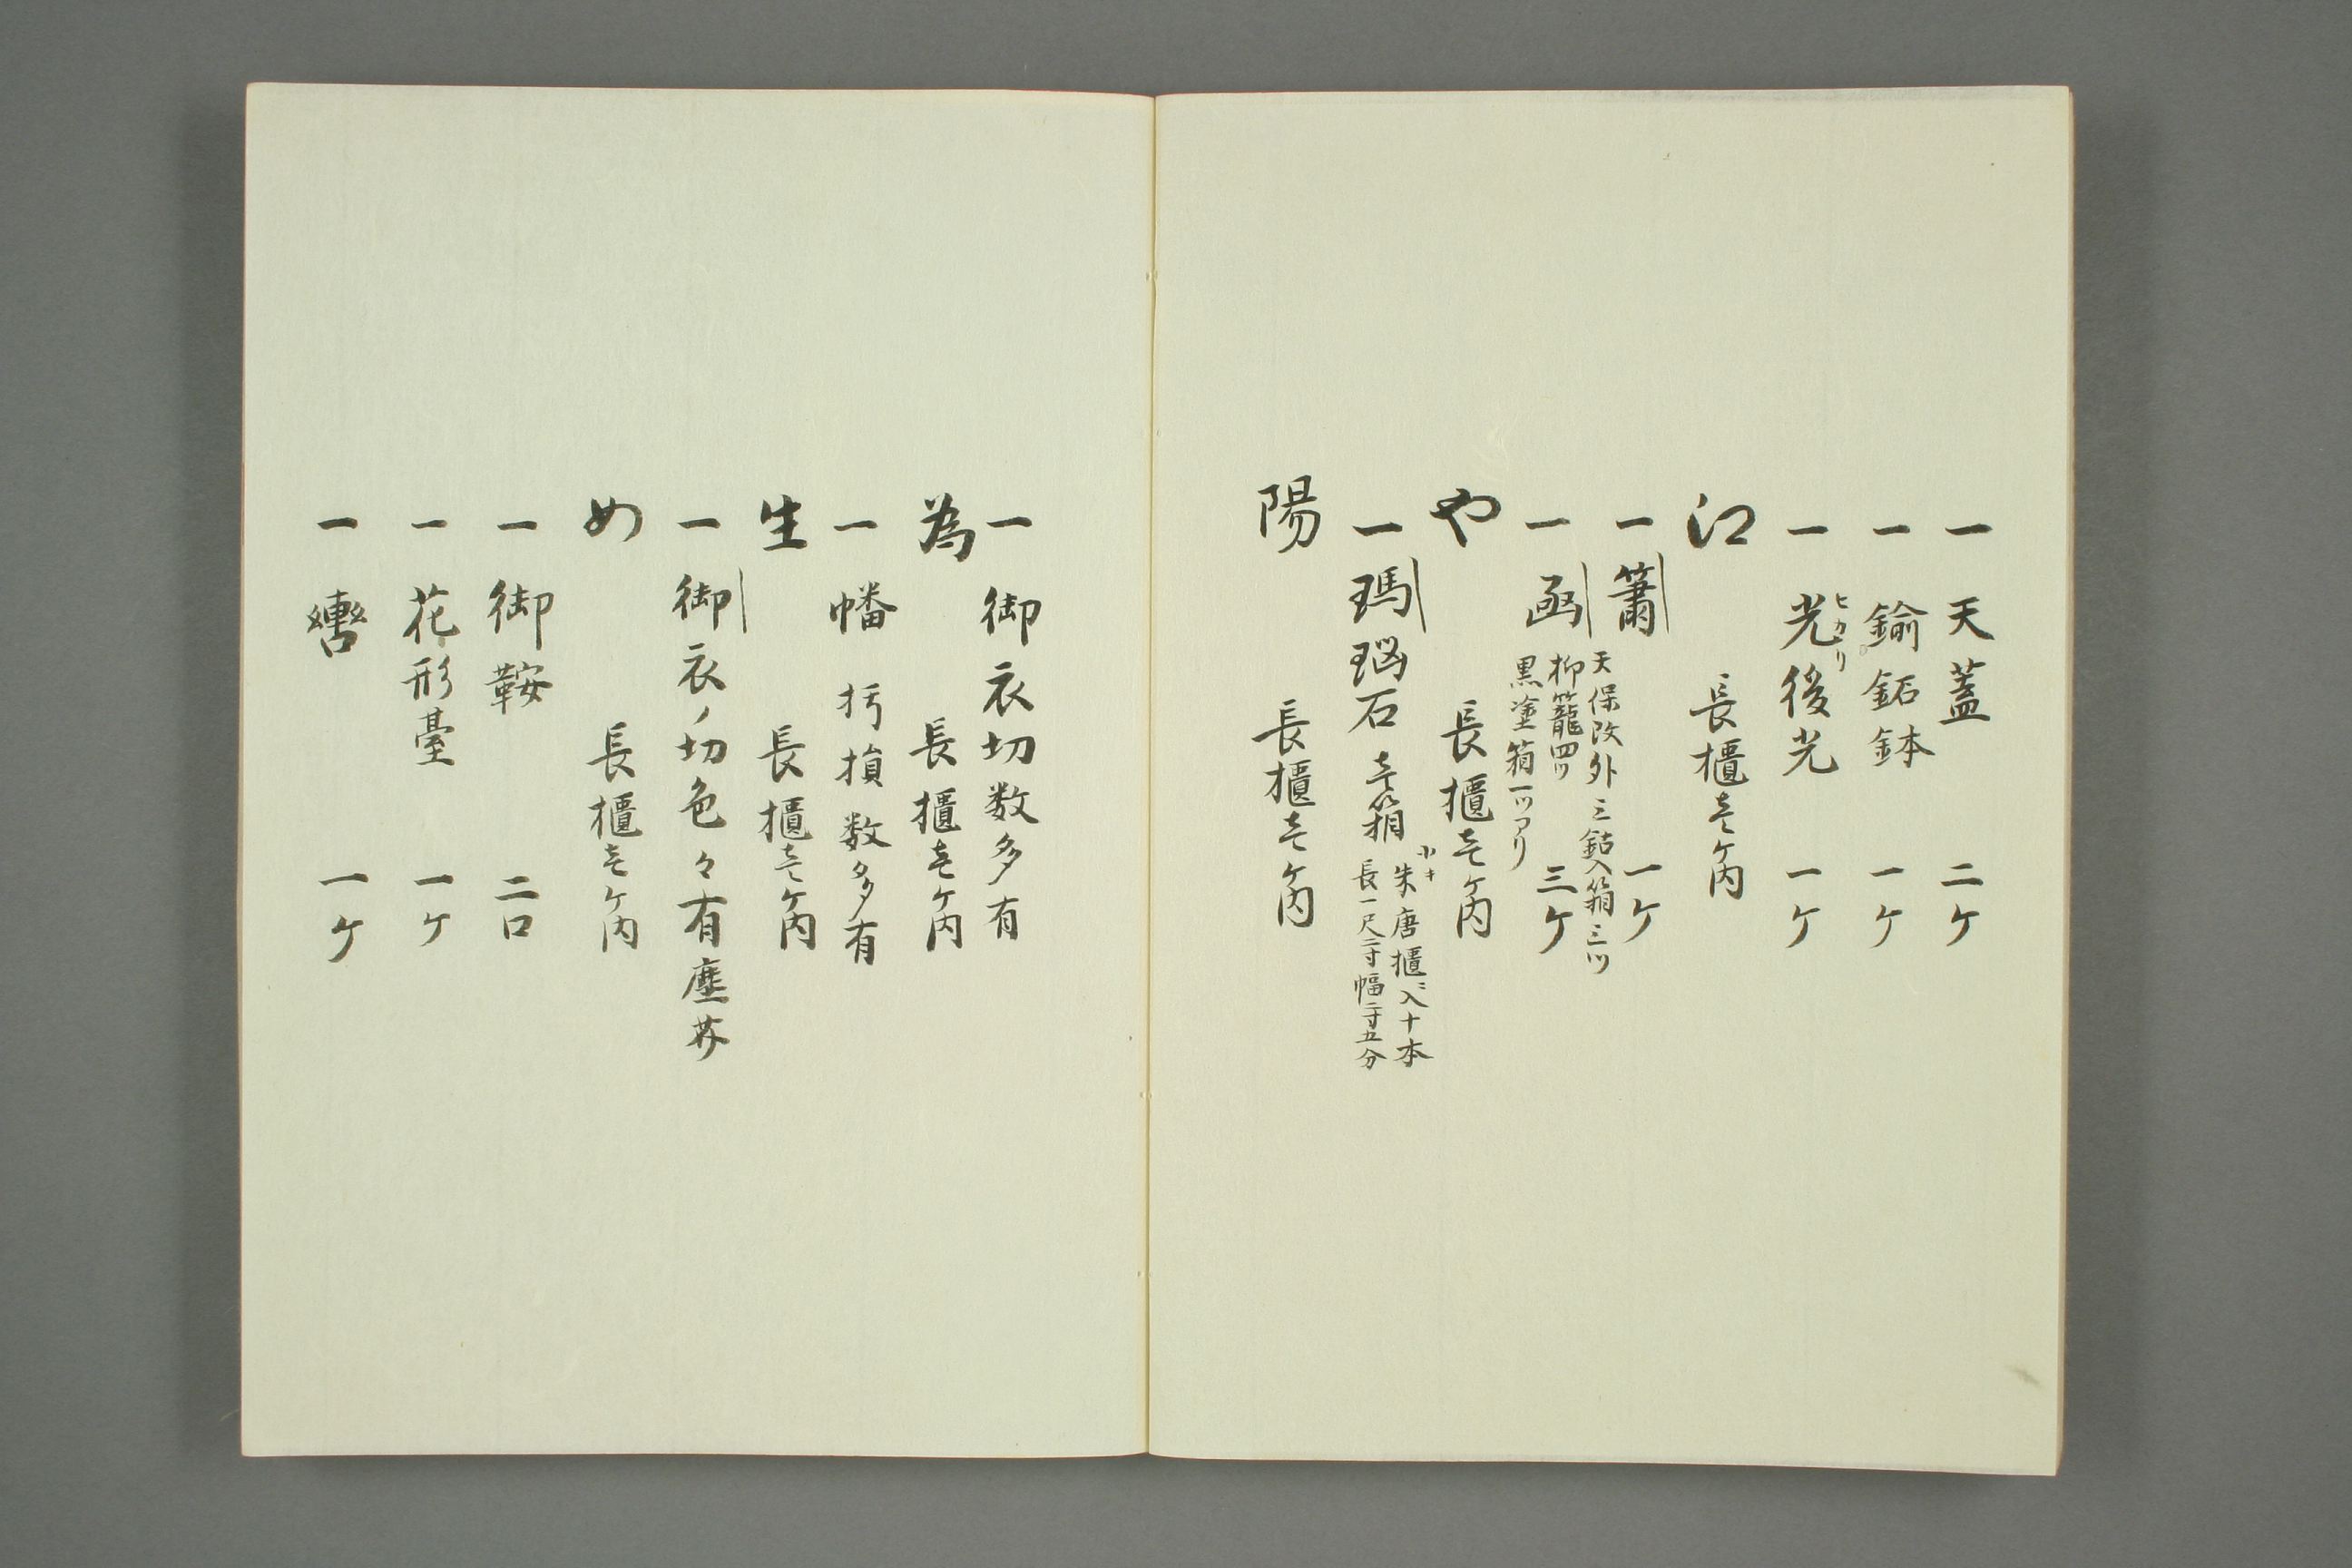 一 天蓋 二ケ
一 鍮鉐鉢 一ケ
一 光後光 一ケ
ヒカリ
江 長櫃壱ケ内
一 簫 一ケ
天保改外ミ鈷入箱三ツ
柳籠四ツ
黒塗箱一ツアリ
一 凾 三ケ
や 長櫃壱ケ内
一 瑪瑙石 壱箱
小キ朱唐櫃ニ入十本
長一尺二寸幅二寸五分
陽 長櫃壱ケ内
一 御衣切数多有
為 長櫃壱ケ内
一 幡 朽損数多有
生 長櫃壱ケ内
一 御衣ノ切色々有塵芥
め 長櫃壱ケ内
一 御鞍 二口
一 花形臺 一ケ
一 轡 一ケ